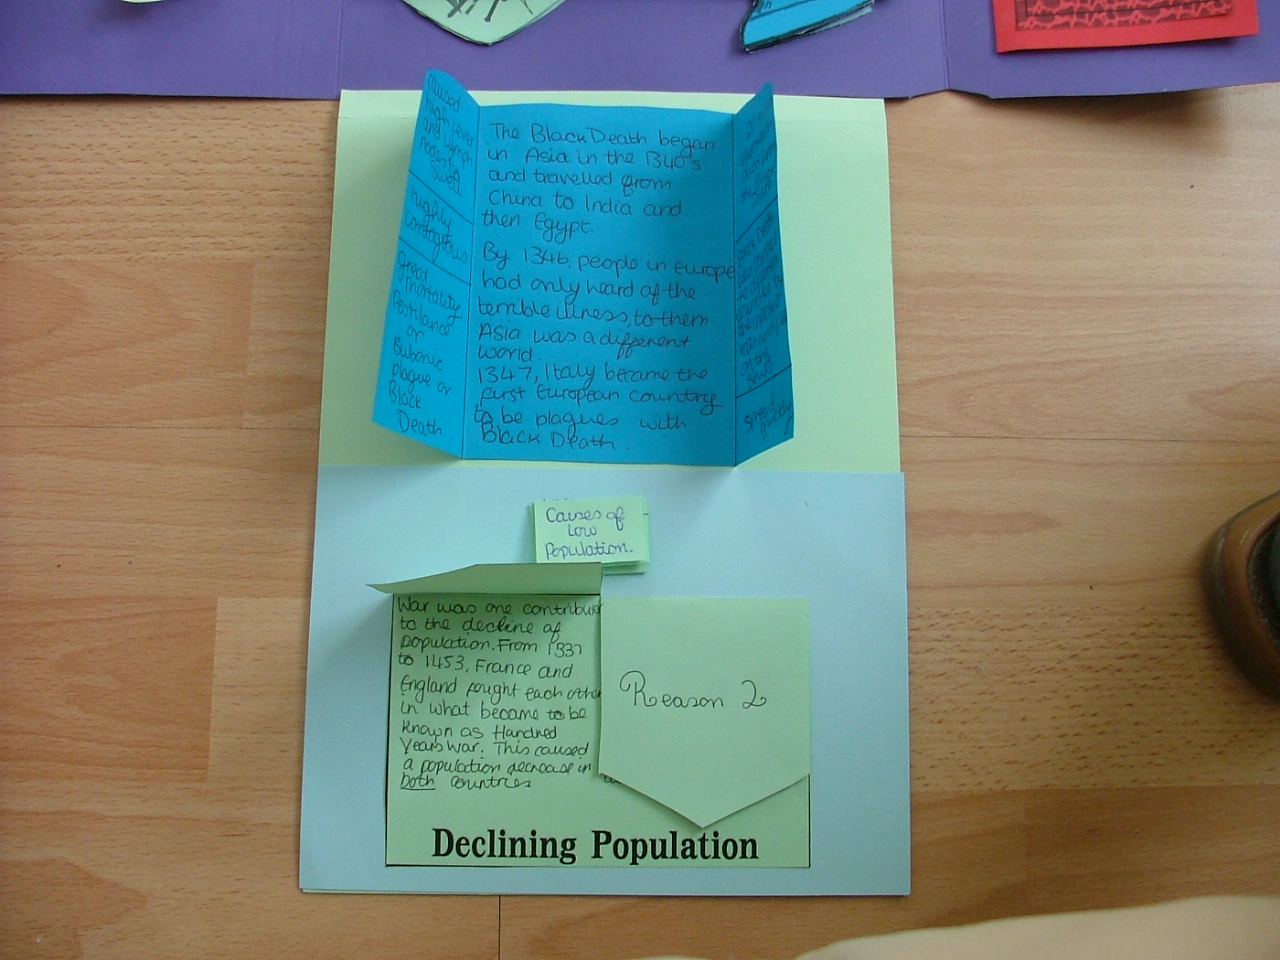 caused
high fever
and lymph
nodes to
swell
highly
contagious
great
mortality
Pestilance
or
Bubonic
plague or
Black
Death
The Black Death began
in Asia in the 1340's
and travelled from
China to India and
then Egypt.
By 1346, people in Europe
had only heard of the
terrible illness, to them
Asia was a different
world.
1347, Italy became the
first European country
to be plagues with
Black Death.
Black Death
on the
ships
spread
quickly
Causes of
Low
Population.
War was one contributer
to the decline of
population. From 1337
to 1453, France and
England fought each other
in what became to be
known as Hundred
Years War. This caused
a population decrease in
both countries
Reason 2
Declining Population